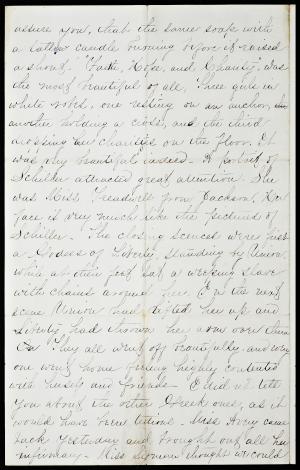 assure you, that the same soap with
a tallow candle burning before it raised
a shout. "Faith, Hope, and Charity," was
the most beautiful of all. Three girls in
white robes, one resting on an anchor,
another holding a cross, and the third
charities on the floor. It
was very beautiful indeed. A Portrait of
Schiller attracted great attention. She
was Miss Treadwell from Jackson. Her
face is very much like the pictures of
Schiller. The closing scences were first
a Godess of Liberty, standing by
while at their feet sat a weeping slave
with chains around her. In the next
scene Union had lifted her up and
Liberty had thrown her arm over
They all went off beautifully, and every
one went home being highly contented
with husely and friends. I did n't tell
you about the other Greek ones, as it
would have been tedious. Miss Avery came
back yesterday and brought out all her
infirmary. Miss thought we could